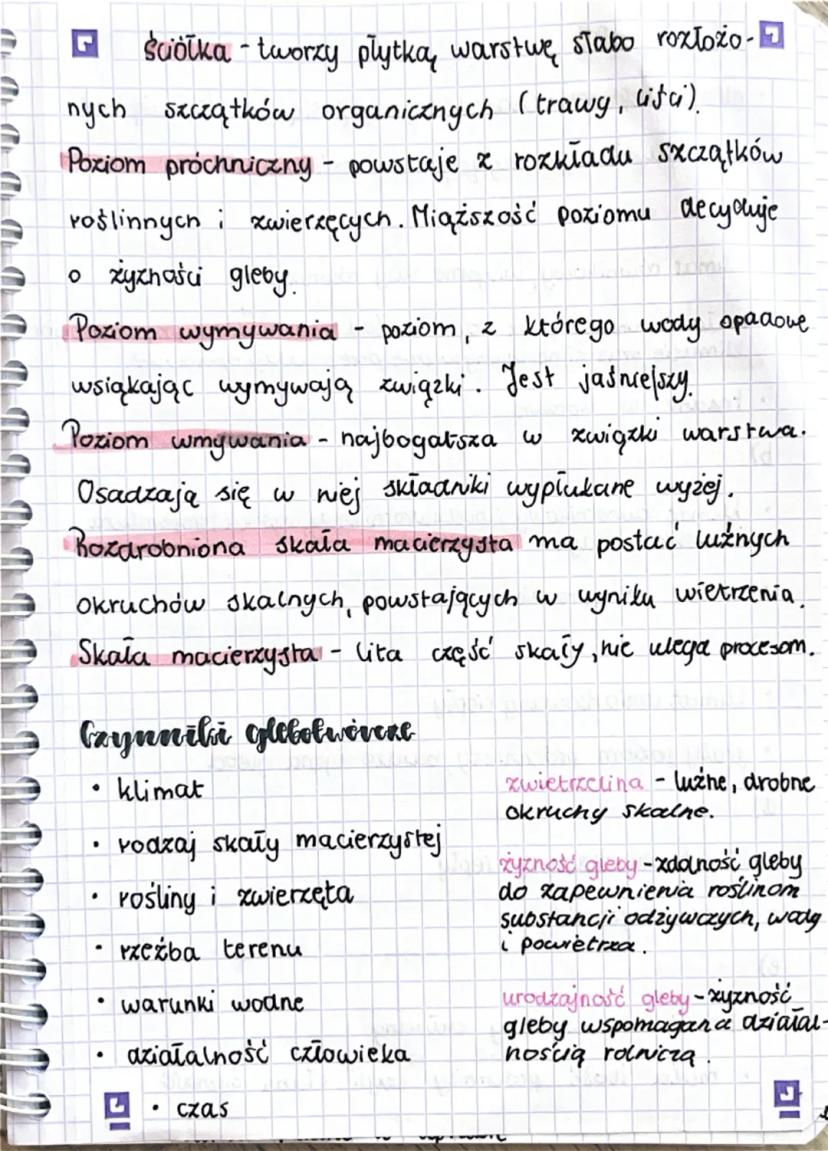 ściółka - tworzy płytką warstwę słabo rozłożo-
nych szczątków organicznych (trawy, liści).
Poziom próchniczny - powstaje z rozkładu szczątków
roślinnych i zwierzęcych. Miąższość poziomu decyduje
o żyzności gleby.
Poziom wymywania - poziom, z którego wody opadowe
wsiąkając wymywają związki. Jest jaśniejszy.
Poziom wmywania - najbogatsza w związki warstwa.
Osadzają się w niej składniki wypłukane wyżej.
Rozdrobniona skała macierzysta ma postać luźnych
okruchów skalnych, powstających w wyniku wietrzenia.
Skała macierzysta - lita część skały, nie ulega procesom.
Czynniki glebotwórcze
• klimat
• rodzaj skały macierzystej
• rośliny i zwierzęta
• rzeźba terenu
• warunki wodne
• działalność człowieka
• czas
zwietrzelina - luźne, drobne
okruchy skalne.
żyzność gleby - zdolność gleby
do zapewnienia roślinom
substancji odżywczych, wody
i powietrza.
urodzajność gleby - żyzność
gleby wspomagana działal-
nością rolniczą.